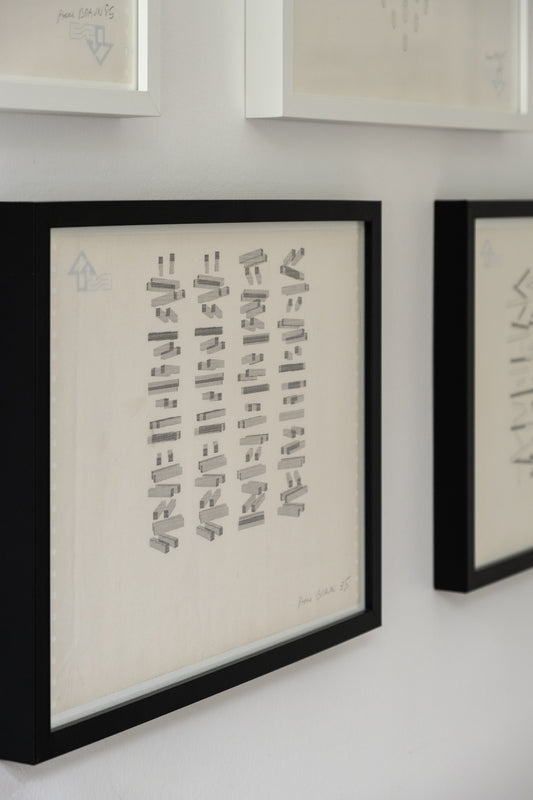 Pierre BRAUN 95
Pierre BRAUN